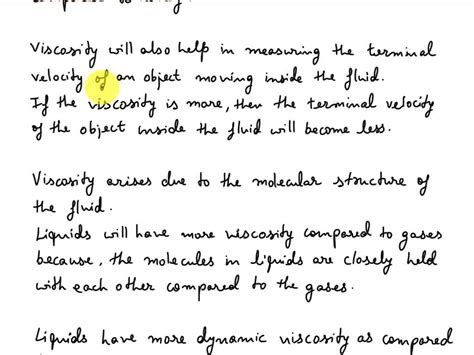 Viscosity will also help in measuring the terminal
velocity of an object moving inside the fluid.
If the viscosity is more, then the terminal velocity
of the object inside the fluid will become less.
Viscosity arises due to the molecular structure of
the fluid.
Liquids will have more viscosity compared to gases
because, the molecules in liquids are closely held
with each other compared to the gases.
Liquids have more dynamic viscosity as compared